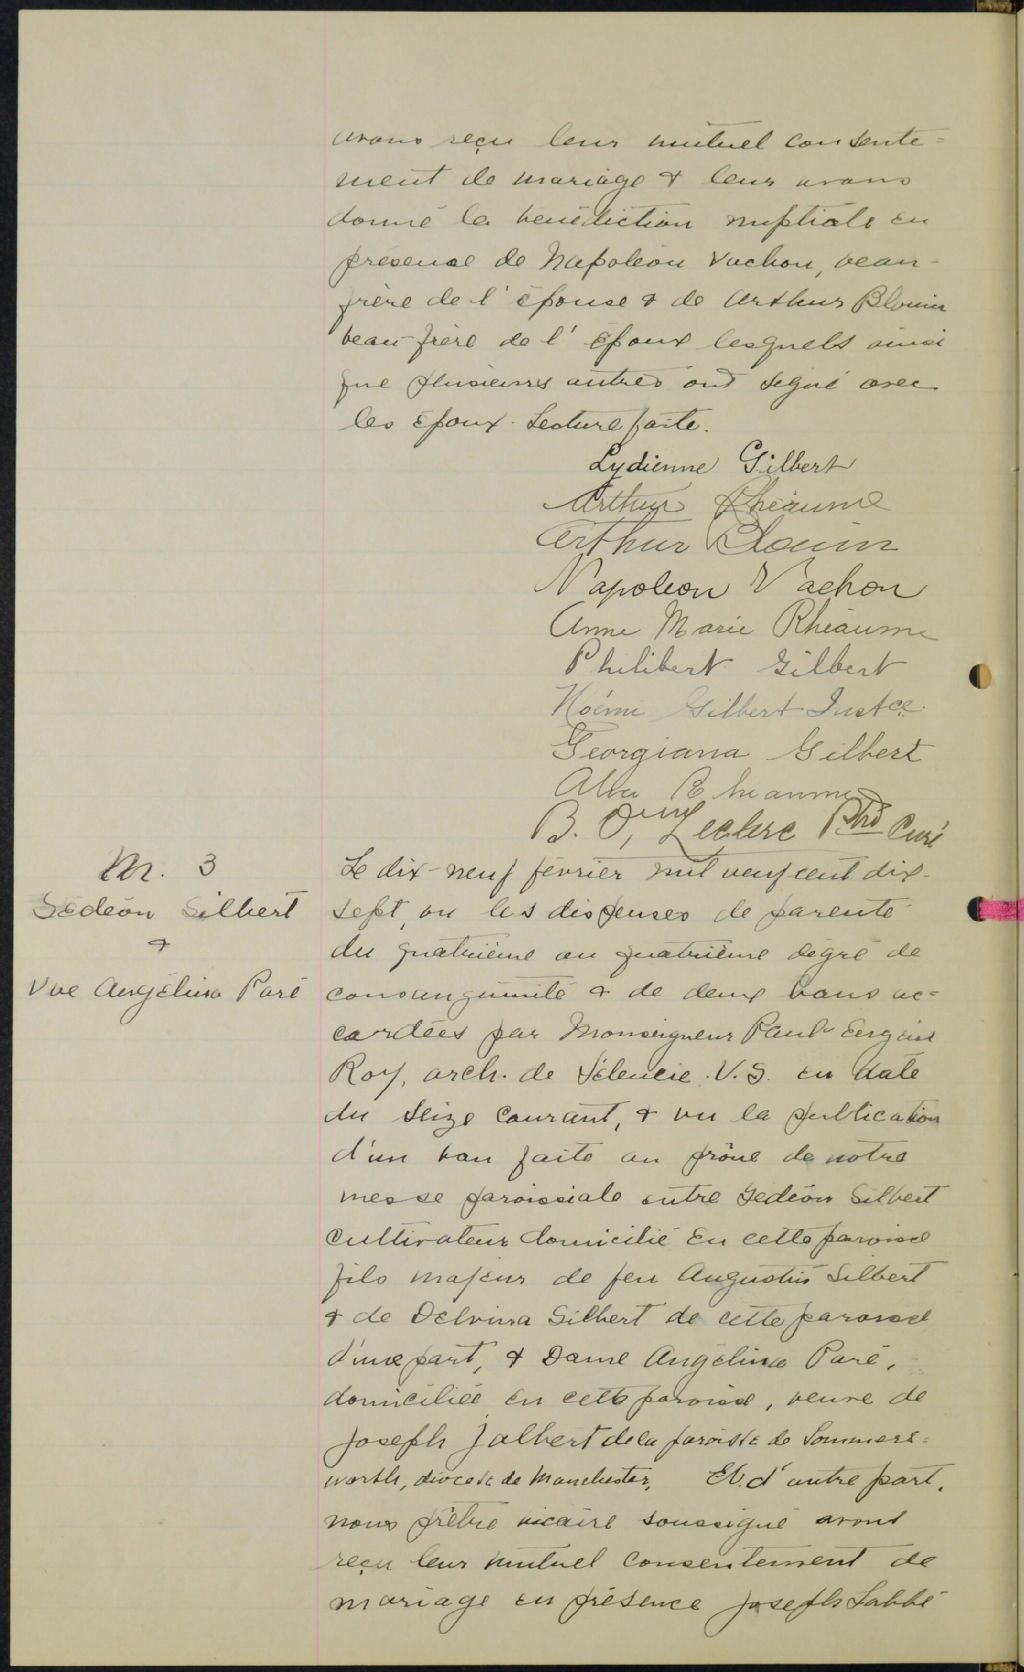 avons reçu leur mutuel consente=
ment de mariage & leur avons
donné la bénédiction nuptiale en
présence de Napoléon Vachon, beau-
frère de l'épouse & de Arthur Blouin
beau-frère de l'époux lesquels ainsi
que plusieurs autres ont signé avec
les époux. Lecture faite.
Lydienne Gilbert
Arthur Rhéaume
Arthur Blouin
Napoleon Vachon
Anne Marie Rhéaume
Philibert Gilbert
Noémi Gilbert Instce
Georgianna Gilbert
Alva Rheaume
B. O. Leclerc Ptre Curé
M. 3
Gédéon Gilbert
&
Vve Angélina Paré
Le dix-neuf février mil neuf cent dix-
sept, vu les dispenses de parenté
du quatrième au quatrième dégré de
consanguinité & de deux bans ac=
cordées par Monseigneur Paul Eugène
Roy, arch. de Séleucie. V.G. en date
du seize courant, & vu la publication
d'un ban faite au prône de notre
messe paroissiale entre Gédéon Gilbert
cultivateur domicilié en cette paroisse
fils majeur de feu Augustin Gilbert
& de Delvina Gilbert de cette paroisse
d'une part, & Dame Angélina Paré,
domiciliée en cette paroisse, veuve de
Joseph Jalbert de la paroisse de Sommers=
worth, diocèse de Manchester, E.U. d'autre part,
nous prêtre vicaire soussigné avons
reçu leur mutuel consentement de
mariage en présence Joseph Labbé